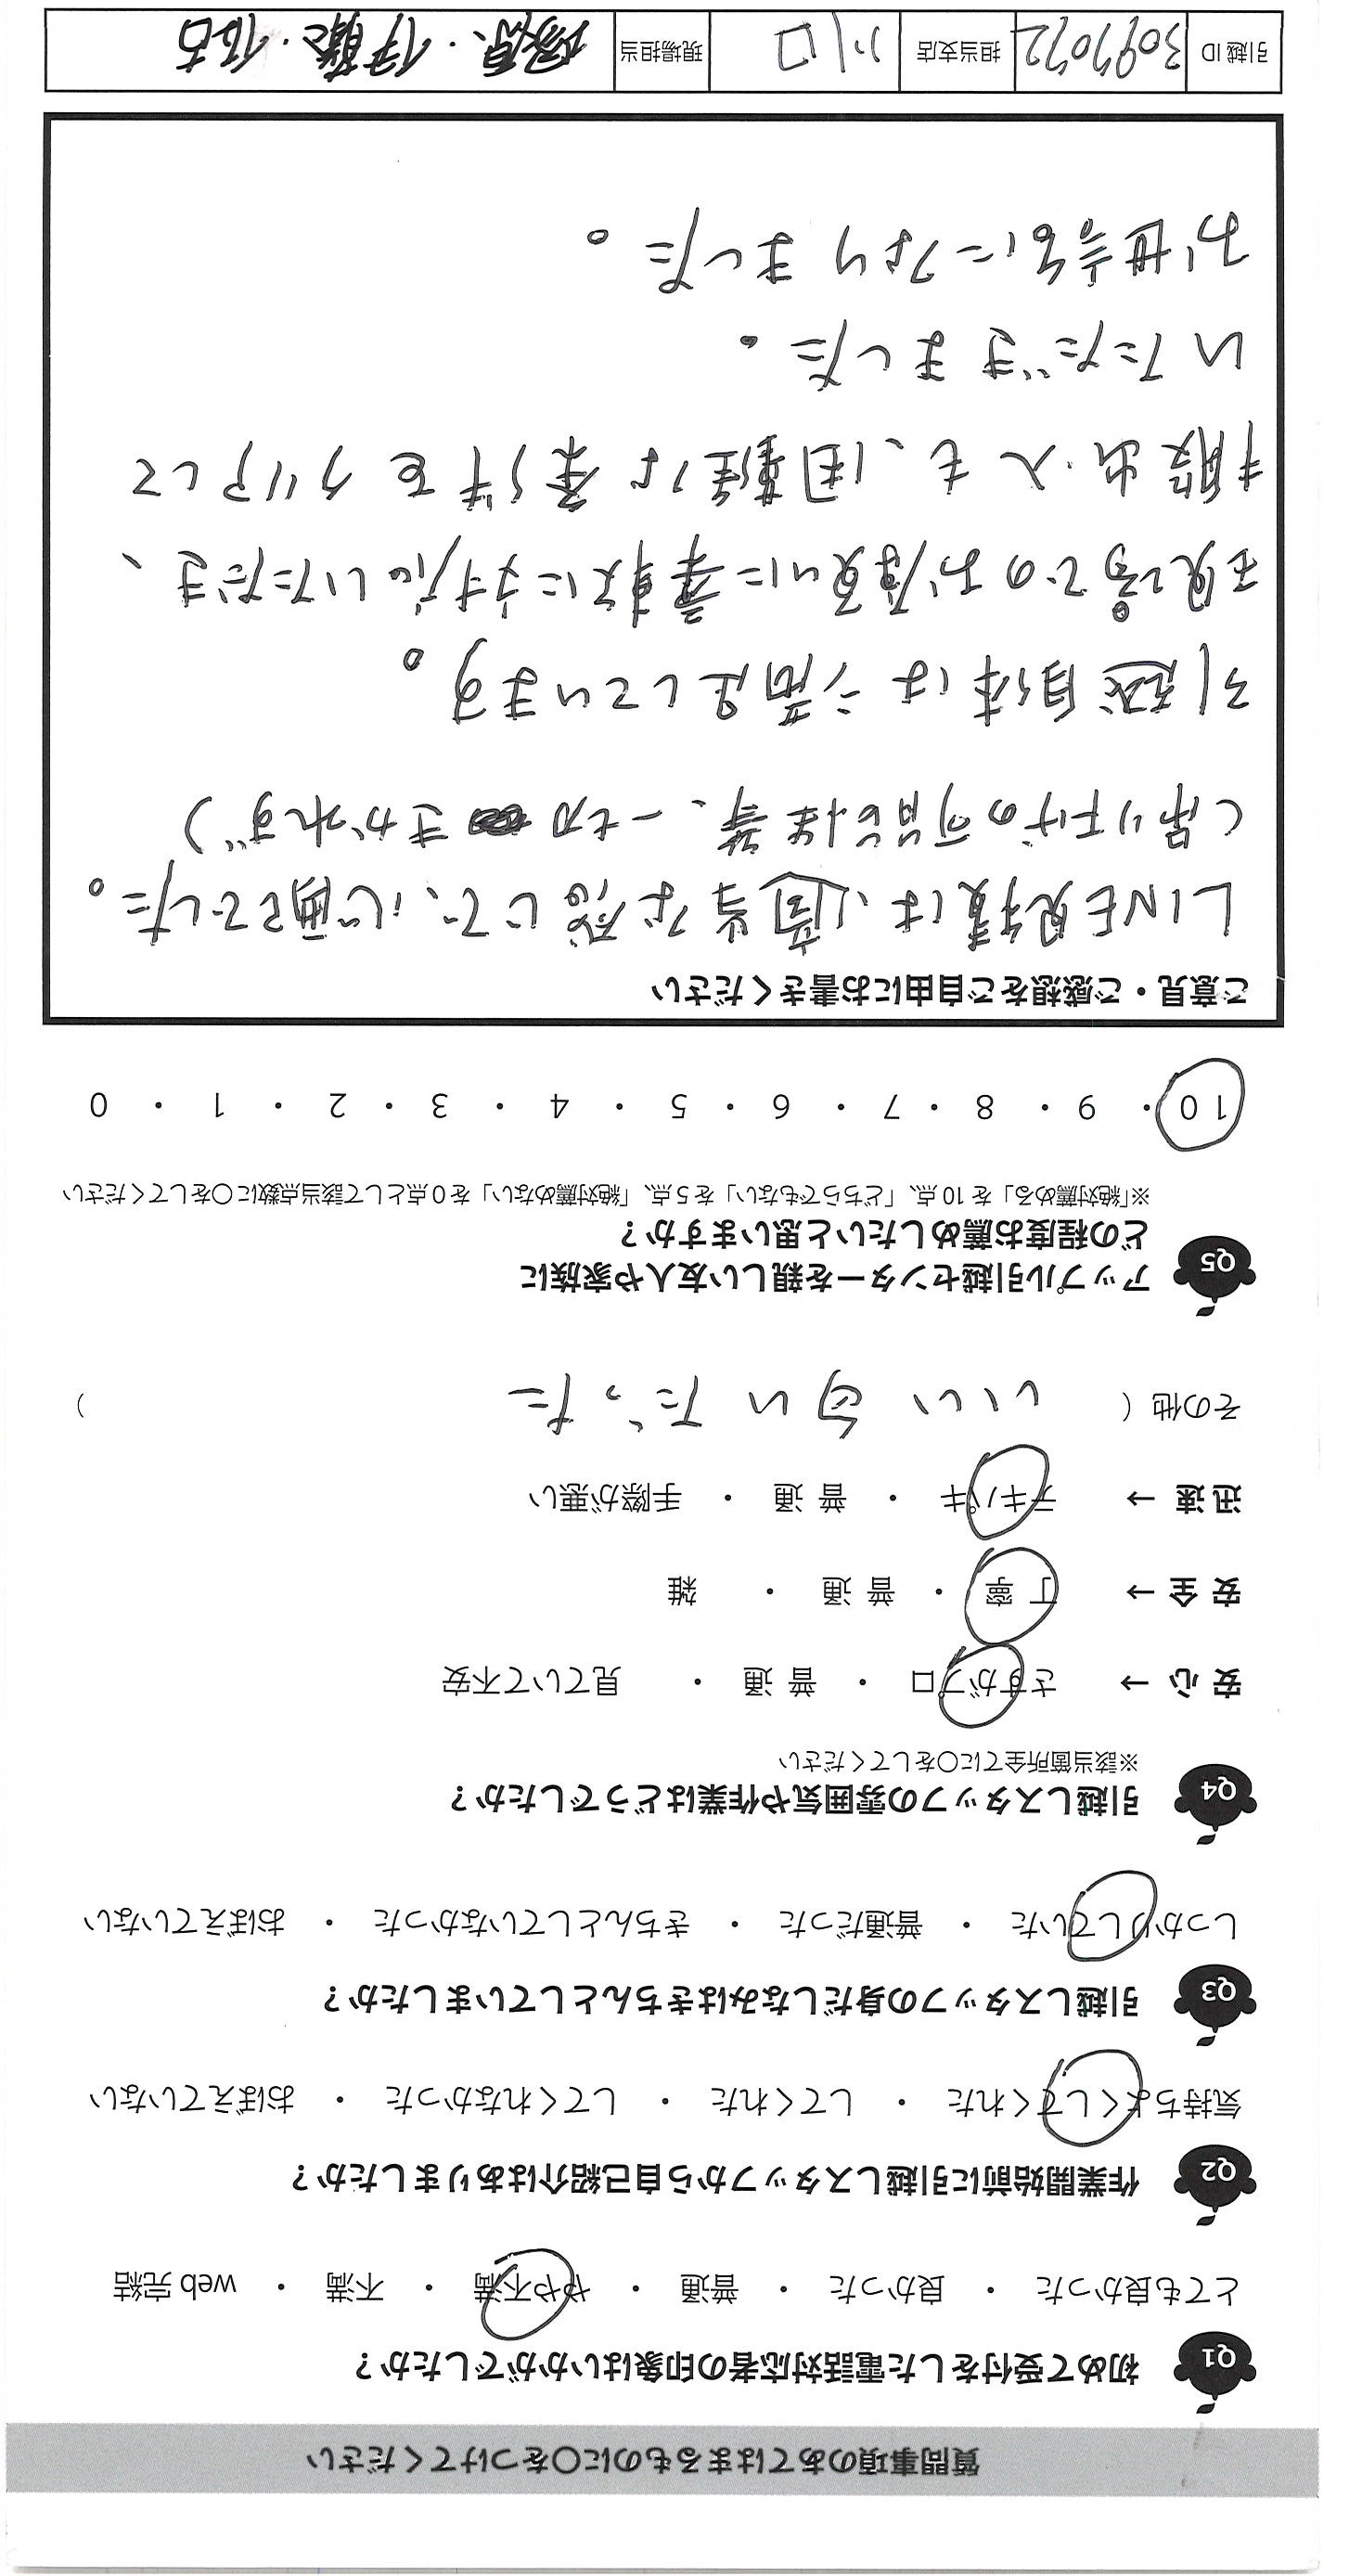 質問事項のあてはまるものに〇をつけてください
Q1 初めて受付をした電話対応者の印象はいかがでしたか？
とても良かった ・ 良かった ・ 普通 ・ やや不満 ・ 不満 ・ web 完結
Q2 作業開始前に引越しスタッフから自己紹介はありましたか？
気持ちよくしてくれた ・ してくれた ・ してくれなかった ・ おぼえていない
Q3 引越しスタッフの身だしなみはきちんとしていましたか？
しっかりしていた ・ 普通だった ・ きちんとしていなかった ・ おぼえていない
Q4 引越しスタッフの雰囲気や作業はどうでしたか？
※該当箇所全てに〇をしてください
安 心 → さすがプロ ・ 普 通 ・ 見ていて不安
安 全 → 丁 寧 ・ 普 通 ・ 雑
迅 速 → テキパキ ・ 普 通 ・ 手際が悪い
その他（ いい匂いだった ）
Q5 アップル引越センターを親しい友人や家族に
どの程度お薦めしたいと思いますか？
※「絶対薦める」を 10 点、「どちらでもない」を 5 点、「絶対薦めない」を 0 点として該当点数に〇をしてください
10 ・ 9 ・ 8 ・ 7 ・ 6 ・ 5 ・ 4 ・ 3 ・ 2 ・ 1 ・ 0
ご意見・ご感想をご自由にお書きください
LINE見積は、適当な感じで、心配でした。
（吊り下げの可能性等、一切きかれず）
引越自体は満足しています。
現場でのお値買いに事故にせずにいただき、
搬出・入も、困難な条件をクリアして
いただきました。
お世話になりました。
引越 ID 3097072 担当支店 川口 現場担当 塚原・伊藤・佐古